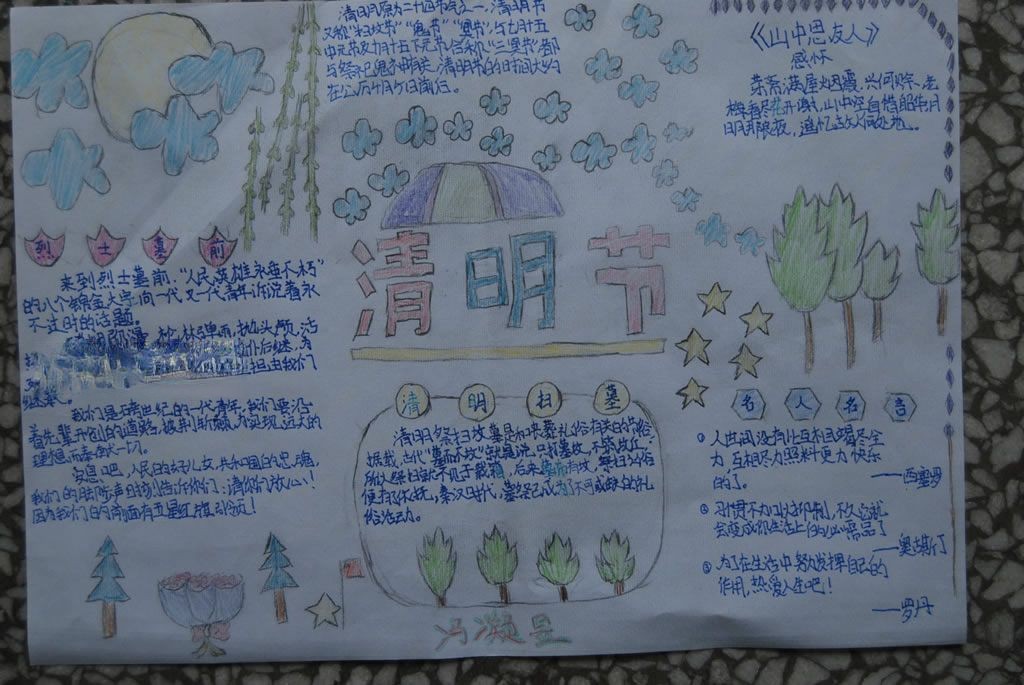 清明原为二十四节气之一,清明节
又称“扫坟节”“鬼节”“冥节”,与七月十五
中元节及十月十五下元节,合称“三冥节”都
与祭祀鬼神有关。清明节的时间大约
《山中思友人》
感怀
茶斋满屋烟霞,兴何赊,老
梅看尽花开谢,山中空自惜韶华,月
明
清明节
烈士墓前
来到烈士墓前,“人民英雄永垂不朽”
的八个镏金大字,向一代又一代青年诉说着永
不过时的话题。
枪林弹雨,抛头颅,洒
仆后继,为
担由我们
我们是跨世纪的一代青年,我们要沿
着先辈开创的道路,披荆斩棘,为实现远大的
理想而奉献一切。
安息吧,人民的好儿女,共和国的忠魂,
我们的
因为我们的前面有五星红旗引领!
清明扫墓
清明祭扫坟墓是和丧葬礼俗有关的节俗。
据载,古代“墓而不坟”就是说只打墓坑,不筑坟丘,
所以祭扫就不见于载籍。后来墓而且坟,祭扫之俗
便有了依托。秦汉时代,墓祭已成为不可或缺的礼
俗活动。
名人名言
① 人世间没有比互相竭尽全
力、互相尽力照料更加快乐
的了。
——西塞罗
② 习惯不加以抑制,不久它就
会变成你生活上的必需品了
——奥古斯丁
③ 为了在生活中努力发挥自己的
作用,热爱人生吧!
——罗丹